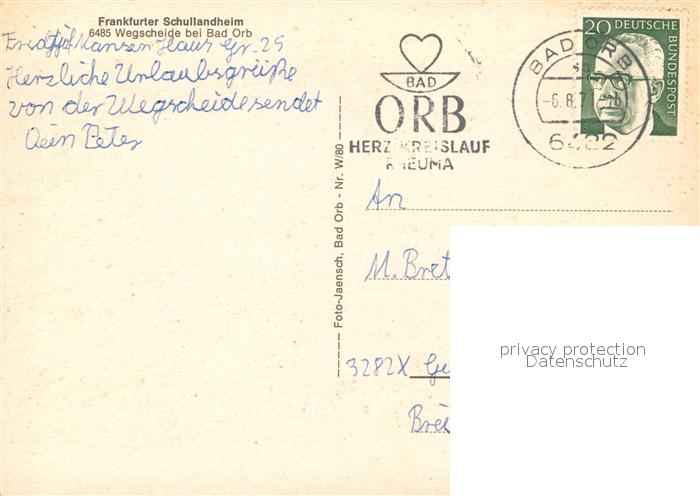 Frankfurter Schullandheim
6485 Wegscheide bei Bad Orb
Fridtjof Nansen Haus Gr. 25
Herzliche Urlaubsgrüße
von der Wegscheide sendet
Dein Peter
BAD
ORB
HERZ KREISLAUF
RHEUMA
BAD ORB
-6.8.7
6482
20 DEUTSCHE
BUNDESPOST
Foto-Jaensch, Bad Orb - Nr. W/80
An
M. Bret
3282X Ge
Bre
privacy protection
Datenschutz